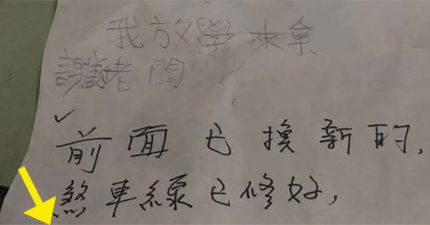 我放學來拿
謝謝老闆
✓
前面已換新的,
煞車線已修好,